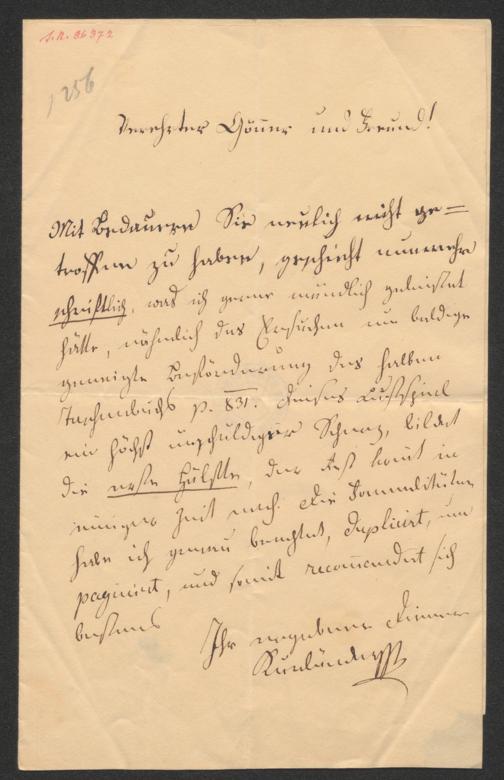 I.N. 36372
1256
Verehrter Gönner und Freund!
Mit Bedauern Sie neulich nicht ge=
troffen zu haben, geschieht nunmehr
schriftlich, was ich gerne mündlich geleistet
hätte, nähmlich das Ersuchen um baldige
geneigte Beförderung des halben
Taschenbuchs p. 831. Dieses Lustspiel
ein höchst unschuldiger Scherz, bildet
die erste Hälfte, der Rest kömt in
einiger Zeit nach. Die Formalitäten
habe ich genau beachtet, duplicirt,
paginirt, und somit recommendirt sich
bestens
Ihr ergebener Diener
Kurländer